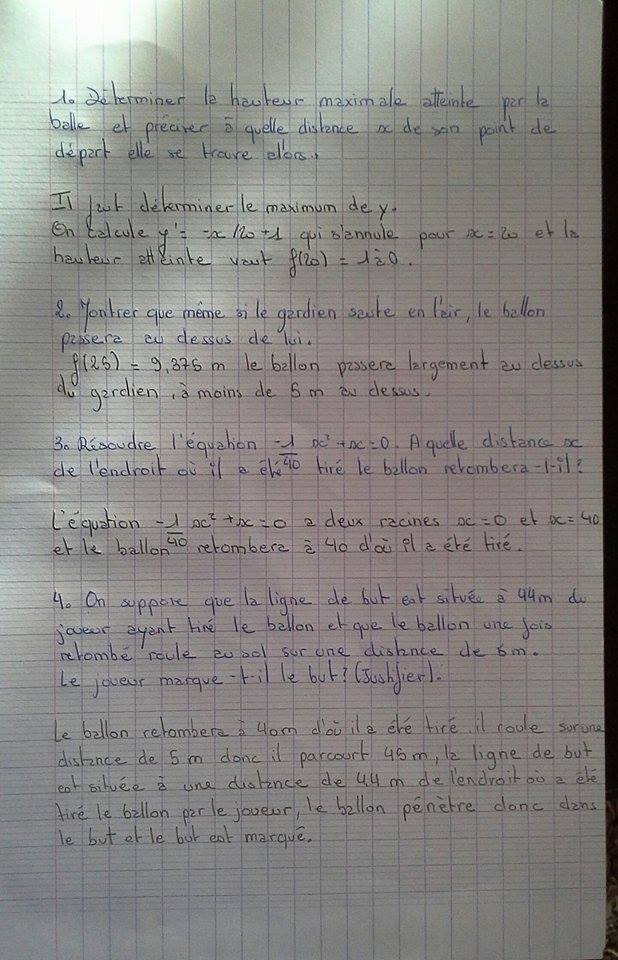 1. Déterminer la hauteur maximale atteinte par la
balle et préciser à quelle distance x de son point de
départ elle se trouve alors.
Il faut déterminer le maximum de y.
On calcule y' = -x/20 + 1 qui s'annule pour x = 20 et la
hauteur atteinte vaut f(20) = 10.
2. Montrer que même si le gardien saute en l'air, le ballon
passera au dessus de lui.
f(25) = 9,375 m le ballon passera largement au dessus
du gardien, à moins de 5 m au dessus.
3. Résoudre l'équation -1/40 x² + x = 0. A quelle distance x
de l'endroit où il a été tiré le ballon retombera-t-il?
L'équation -1/40 x² + x = 0 a deux racines x = 0 et x = 40
et le ballon retombera à 40 d'où il a été tiré.
4. On suppose que la ligne de but est située à 44m du
joueur ayant tiré le ballon et que le ballon une fois
retombé roule au sol sur une distance de 5m.
Le joueur marque-t-il le but? (Justifier).
Le ballon retombera à 40m d'où il a été tiré il roule sur une
distance de 5 m donc il parcourt 45m, la ligne de but
est située à une distance de 44 m de l'endroit où a été
tiré le ballon par le joueur, le ballon pénètre donc dans
le but et le but est marqué.